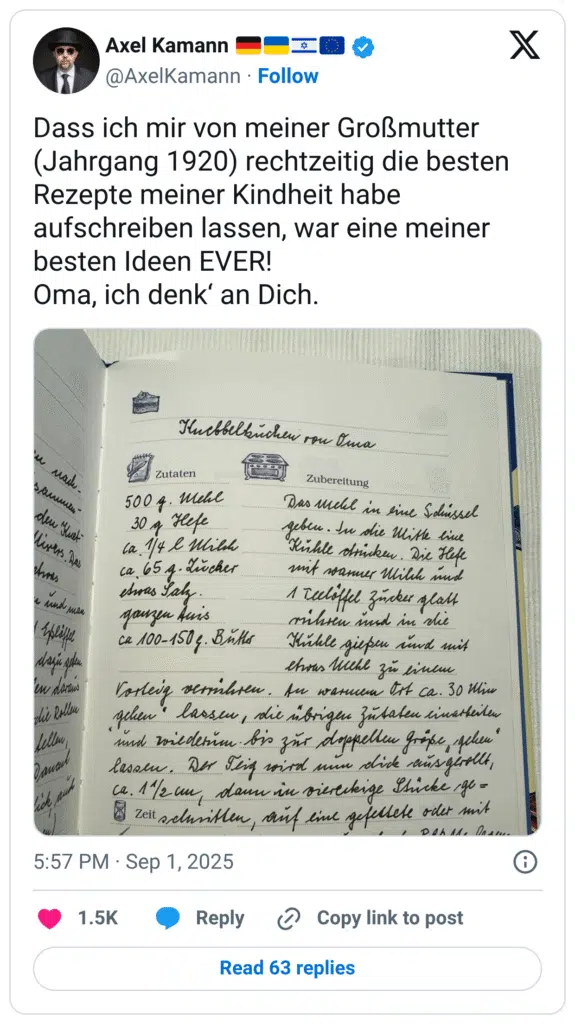 Axel Kamann 🇩🇪🇺🇦🇮🇱🇪🇺
@AxelKamann · Follow
Dass ich mir von meiner Großmutter
(Jahrgang 1920) rechtzeitig die besten
Rezepte meiner Kindheit habe
aufschreiben lassen, war eine meiner
besten Ideen EVER!
Oma, ich denk‘ an Dich.
Knebbelkuchen von Oma
Zutaten
500 g. Mehl
30 g Hefe
ca. 1/4 l Milch
ca. 65 g. Zucker
etwas Salz.
ganzen Anis
ca 100-150 g. Butter
Zubereitung
Das Mehl in eine Schüssel
geben. In die Mitte eine
Kuhle drücken. Die Hefe
mit warmer Milch und
1 Teelöffel Zucker glatt
rühren und in die
Kuhle gießen und mit
etwas Mehl zu einem
Vorteig verrühren. An warmem Ort ca. 30 Min
"gehen" lassen, die übrigen Zutaten einarbeiten
und wiederum bis zur doppelten Größe "gehen"
lassen. Der Teig wird nun dick ausgerollt,
ca. 1 1/2 cm, dann in viereckige Stücke ge=
Zeit
schnitten, auf eine gefettete oder mit
nach-
den
etwas
und man
1 Eßlöffel
dazu geben
die Rollen
5:57 PM · Sep 1, 2025
1.5K
Reply
Copy link to post
Read 63 replies